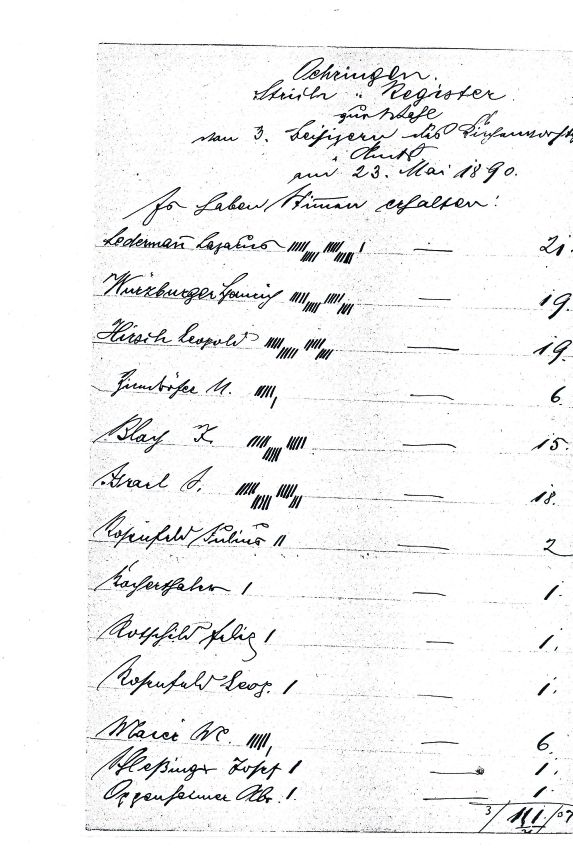 Oehringen.
Strich - Register
zur Wahl
von 3. Beisizern des
Amts
am 23. Mai 1890.
Es haben Stimmen erhalten:
Ledermann Lazarus — 21.
Würzburger Heinrich — 19.
Hirsch Leopold — 19.
Zimdörfer M. — 6.
Blach K. — 15.
Israel S. — 18.
Rosenfeld Julius — 2
Kocherthaler — 1.
Rotschild Felix — 1.
Rosenfeld Leop. — 1.
Maier W. — 6
Schleßinger Josef — 1.
Oppenheimer Abr. — 1.
3/111./37